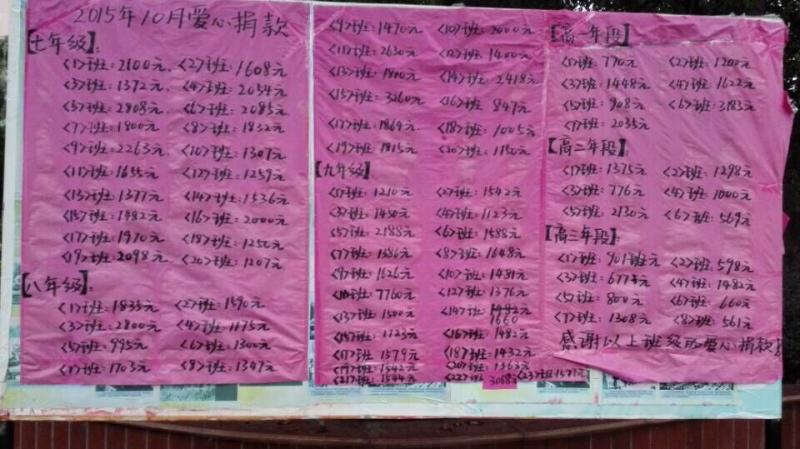 2015年10月爱心捐款
【七年级】:
<1>班:2100元 <2>班:1608元
<3>班:1372元 <4>班:2054元
<5>班:2808元 <6>班:2085元
<7>班:1800元 <8>班:1832元
<9>班:2263元 <10>班:1307元
<11>班:1655元 <12>班:1259元
<13>班:1377元 <14>班:1536元
<15>班:1482元 <16>班:2000元
<17>班:1970元 <18>班:1250元
<19>班:2098元 <20>班:1207元
【八年级】
<1>班:1835元 <2>班:1590元
<3>班:2200元 <4>班:1175元
<5>班:995元 <6>班:1300元
<7>班:1703元 <8>班:1347元
<9>班:1470元 <10>班:2000元
<11>班:2630元 <12>班:1400元
<13>班:1800元 <14>班:2418元
<15>班:3260元 <16>班:847元
<17>班:1864元 <18>班:1005元
<19>班:1815元 <20>班:1150元
【九年级】
<1>班:1210元 <2>班:1542元
<3>班:1450元 <4>班:1123元
<5>班:2188元 <6>班:1588元
<7>班:1586元 <8>班:1648元
<9>班:1626元 <10>班:1481元
班:7760元 <12>班:1376元
<13>班:1500元 <14>班:
1660
<15>班:1123元 <16>班:1482元
<17>班:1579元 <18>班:1432元
<19>班:1542元 <20>班:1363元
<21>班:1544元 <22>班:3068元 <23>班:1577元
【高一年段】
<1>班:770元 <2>班:1200元
<3>班:1448元 <4>班:1622元
<5>班:908元 <6>班:3183元
<7>班:2035元
【高二年段】:
<1>班:1375元 <2>班:1298元
<3>班:776元 <4>班:1000元
<5>班:2130元 <6>班:569元
【高三年段】:
<1>班:901班元 <2>班:598元
<3>班:677元 <4>班:1482元
<5>班:800元 <6>班:660元
<7>班:1308元 <8>班:561元
感谢以上班级的爱心捐款